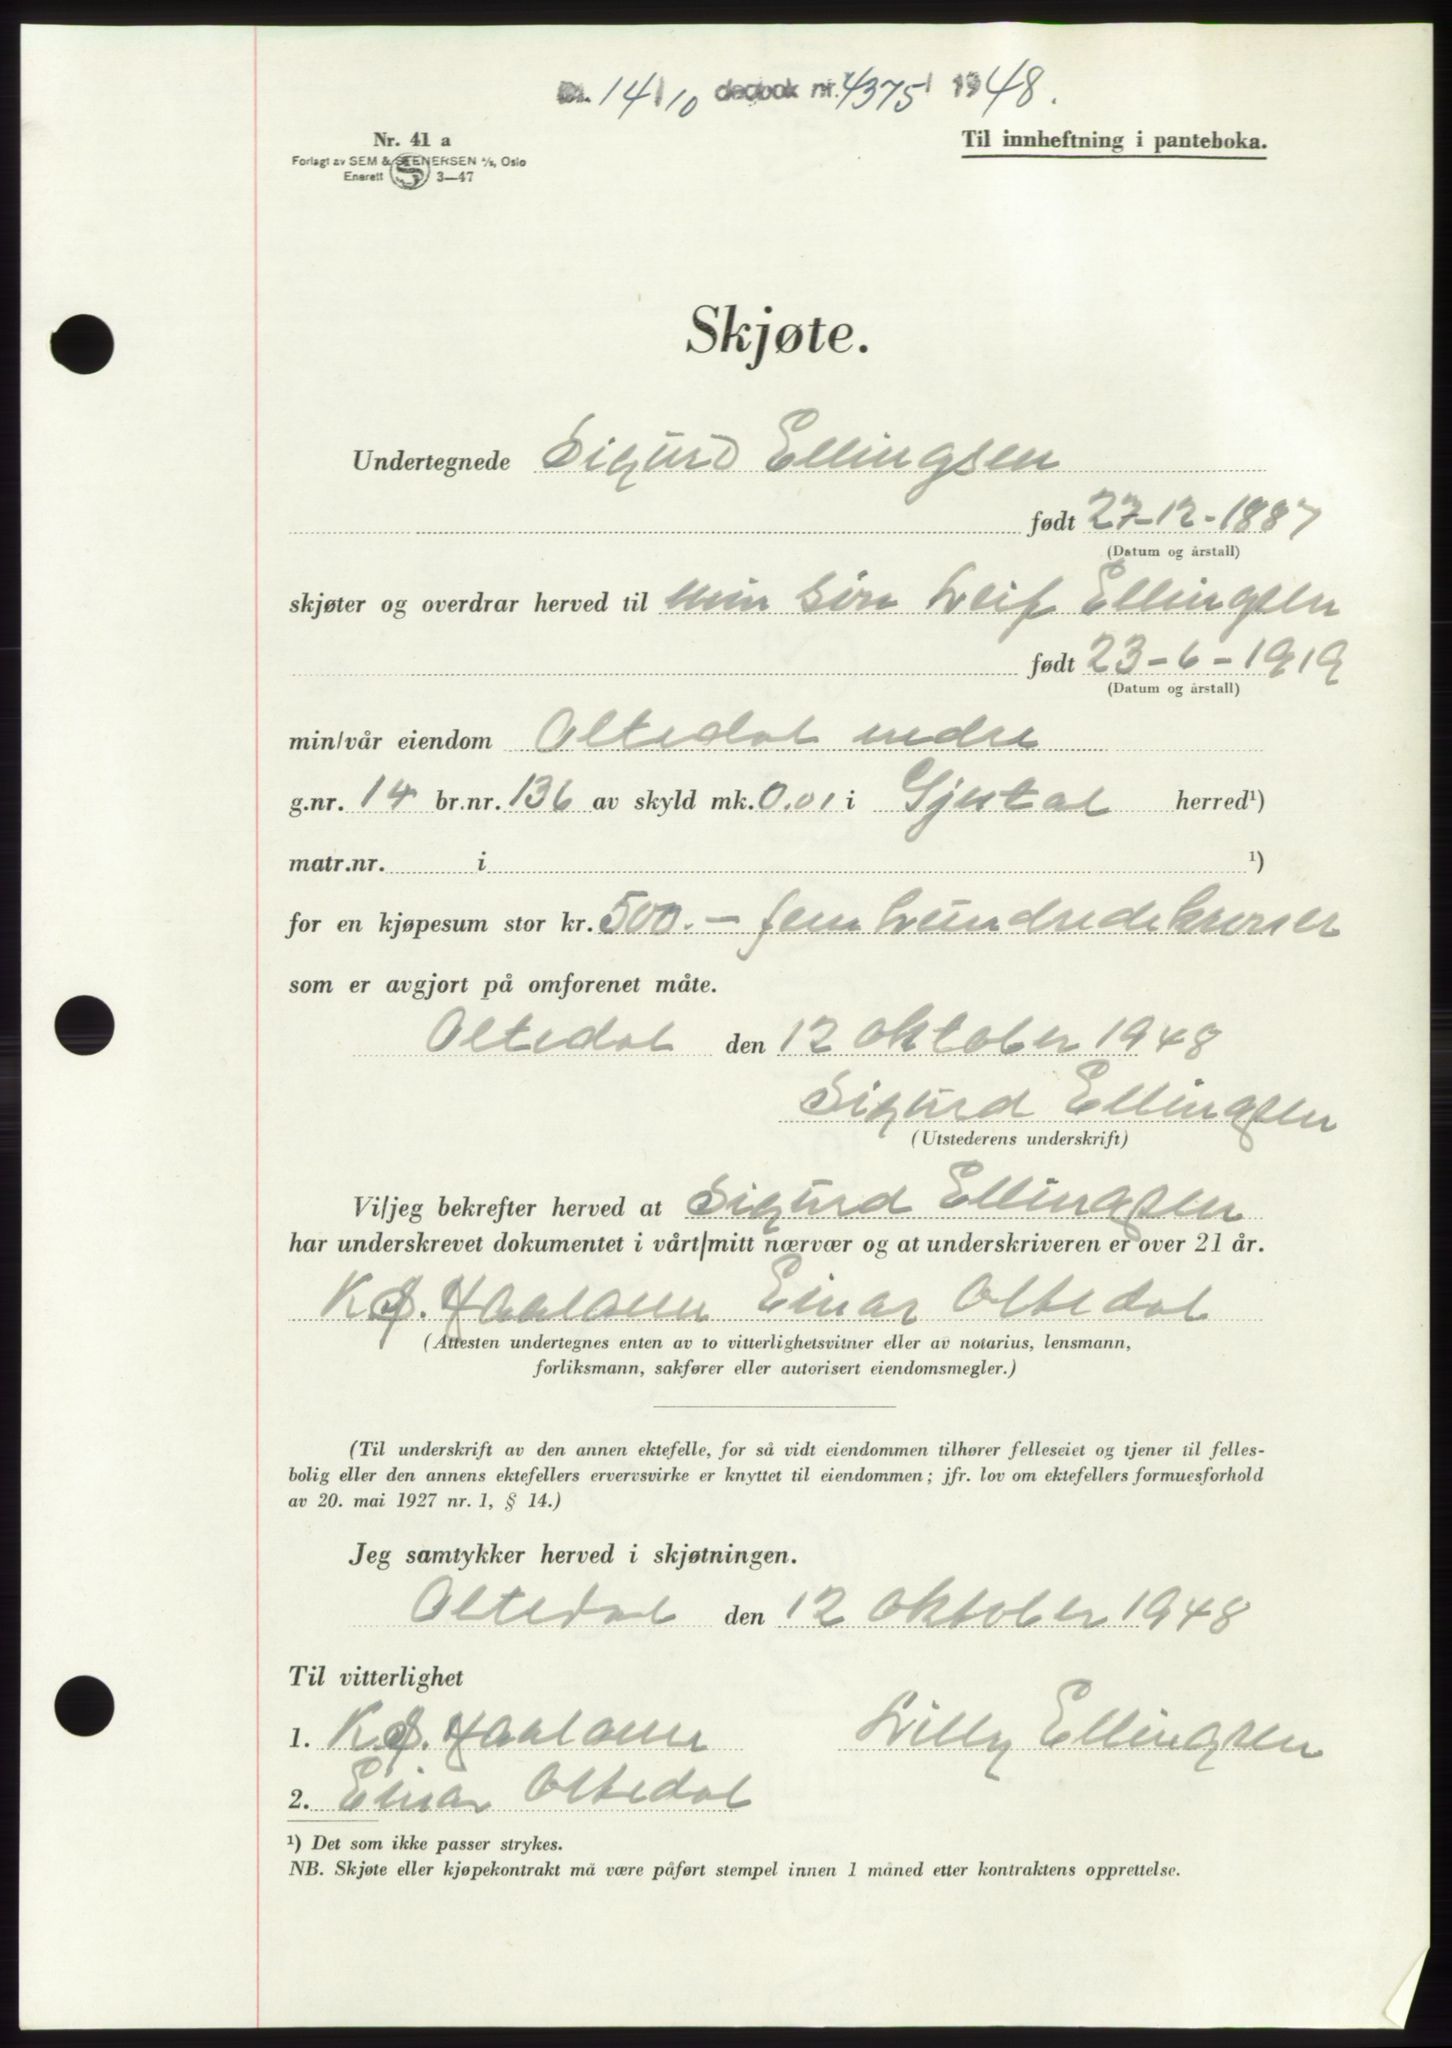 Dl. 14/10 dagbok nr. 4375 1948.
Nr. 41 a
Forlagt av SEM & STENERSEN A/S, Oslo
Enerett 3—47
Til innheftning i panteboka.
Skjøte.
Undertegnede Sigurd Ellingsen
født 27-12-1887
(Datum og årstall)
skjøter og overdrar herved til min sön Leif Ellingsen
født 23-6-1919
(Datum og årstall)
min/vår eiendom Oltedal nedre
g.nr. 14 br.nr. 136 av skyld mk. 0.01 i Gjestal herred¹)
matr.nr. i ¹)
for en kjøpesum stor kr. 500.— fem hundrede kroner
som er avgjort på omforenet måte.
Oltedal den 12 oktober 1948
Sigurd Ellingsen
(Utstederens underskrift)
Vi/jeg bekrefter herved at Sigurd Ellingsen
har underskrevet dokumentet i vårt/mitt nærvær og at underskriveren er over 21 år.
K. J. Haaland Einar Oltedal
(Attesten undertegnes enten av to vitterlighetsvitner eller av notarius, lensmann,
forliksmann, sakfører eller autorisert eiendomsmegler.)
(Til underskrift av den annen ektefelle, for så vidt eiendommen tilhører felleseiet og tjener til felles-
bolig eller den annens ektefellers ervervsvirke er knyttet til eiendommen; jfr. lov om ektefellers formuesforhold
av 20. mai 1927 nr. 1, § 14.)
Jeg samtykker herved i skjøtningen.
Oltedal den 12 oktober 1948
Til vitterlighet
1. K. J. Haaland Lilly Ellingsen
2. Einar Oltedal
¹) Det som ikke passer strykes.
NB. Skjøte eller kjøpekontrakt må være påført stempel innen 1 måned etter kontraktens opprettelse.